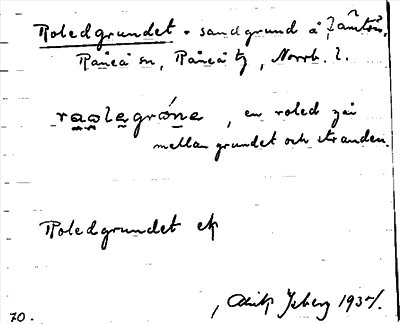 Roledgrundet - sandgrund å
Råneå sn, Råneå tg, Norrb. l.
, en roled går
mellan grundet och stranden.
Roledgrundet ek
, Isberg 1937.
70.